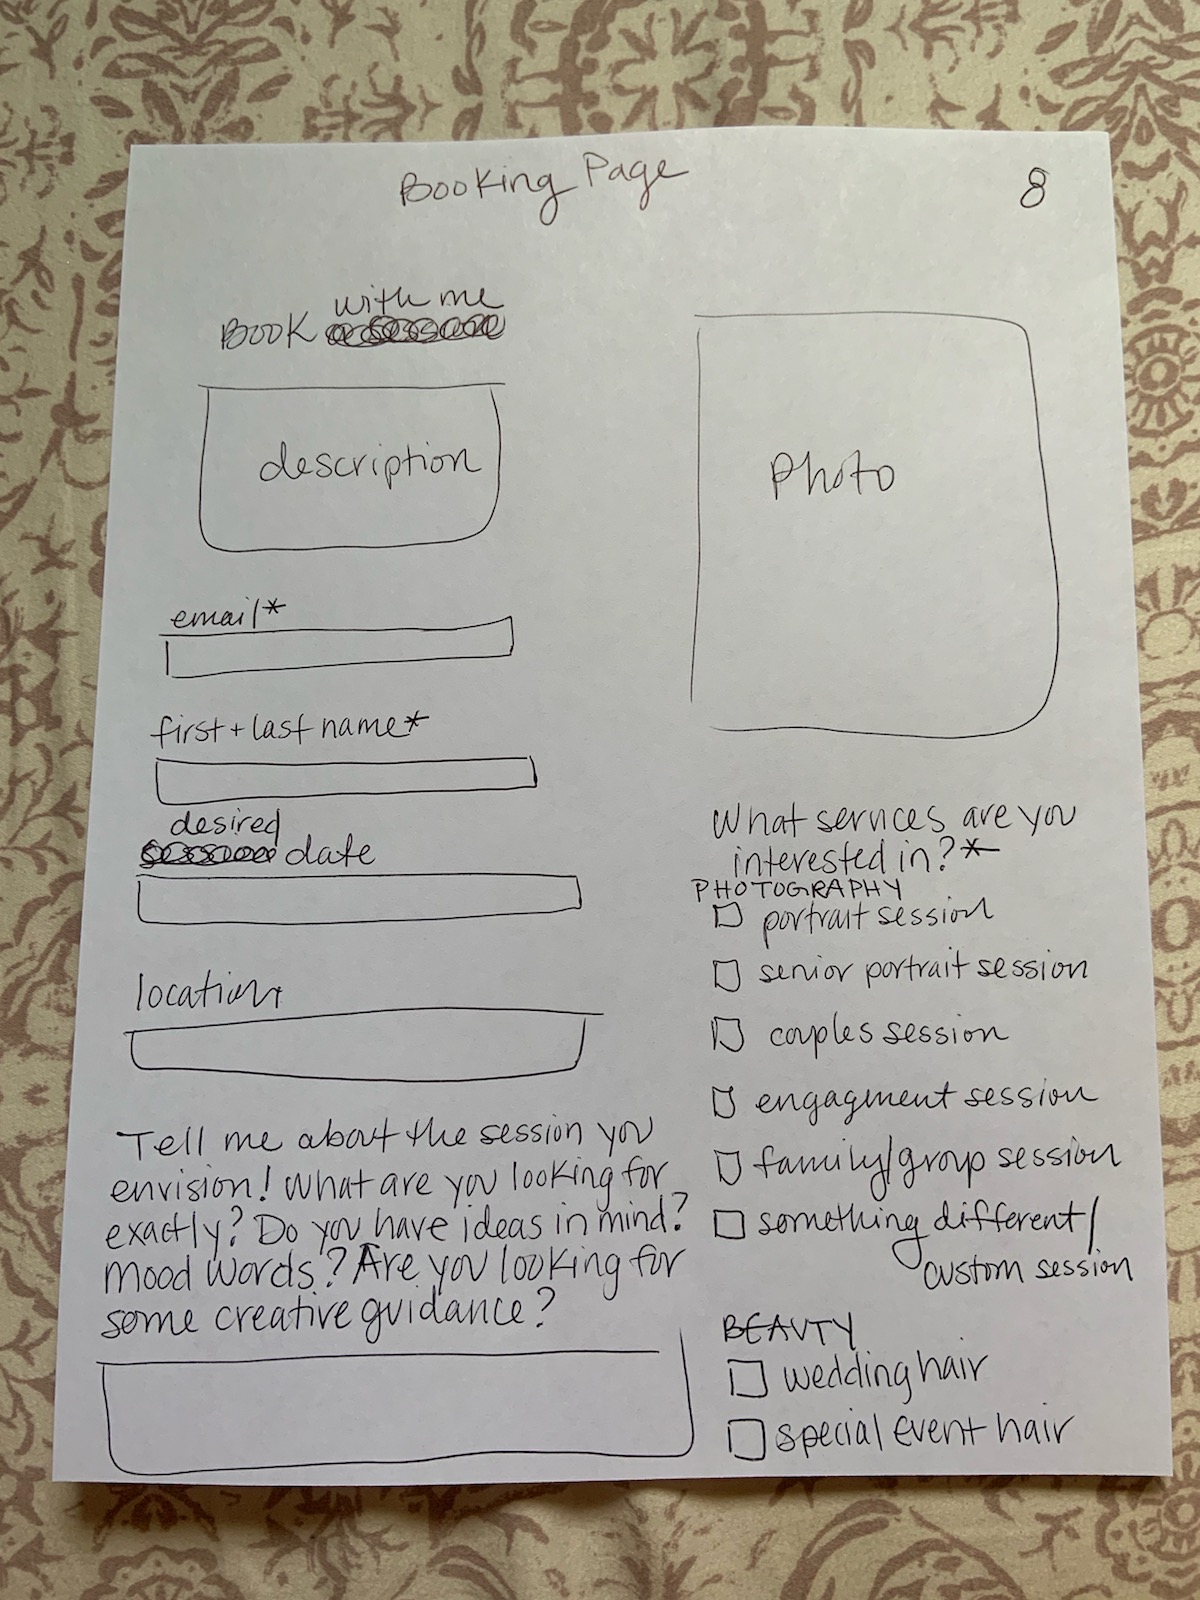 Booking Page
8
with me
BOOK
description
Photo
email*
first + last name*
desired
date
location
Tell me about the session you
envision! What are you looking for
exactly? Do you have ideas in mind?
Mood words? Are you looking for
some creative guidance?
What services are you
interested in?*
PHOTOGRAPHY
portrait session
senior portrait session
couples session
engagment session
family/group session
something different/
custom session
BEAUTY
wedding hair
special event hair